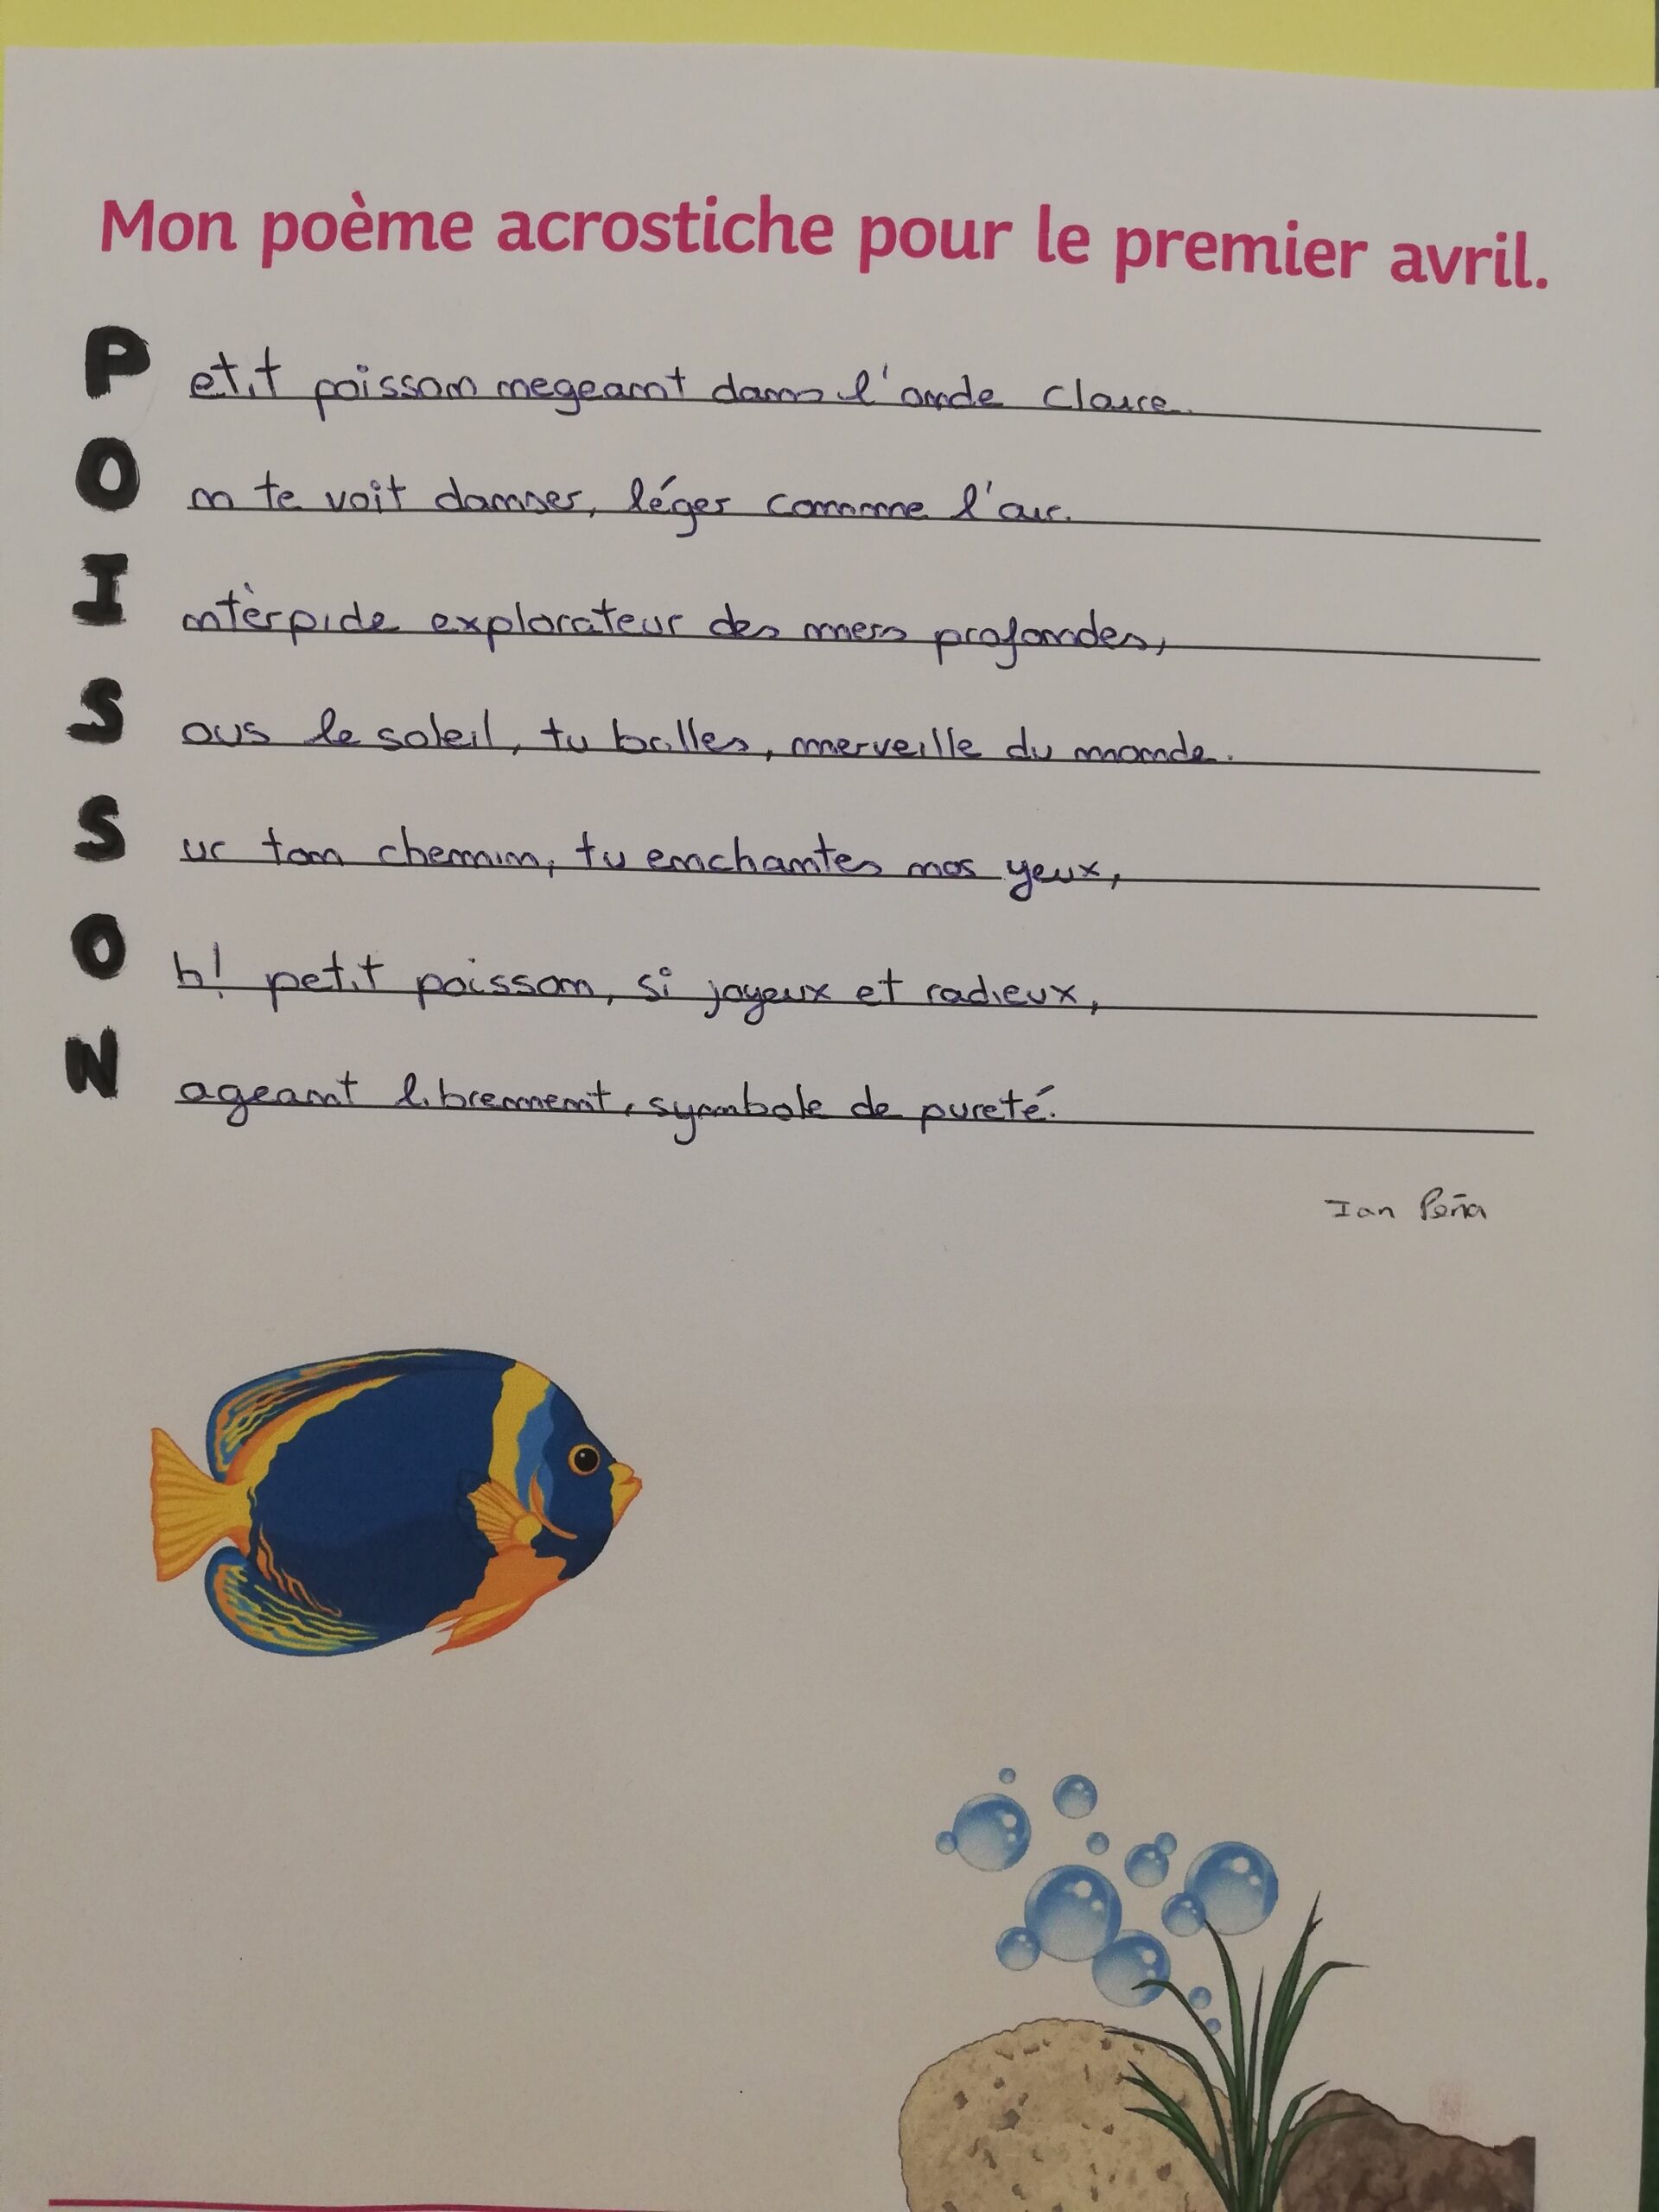 Mon poème acrostiche pour le premier avril.
Petit poisson negeant dans l'onde claire.
On te voit danser, léger comme l'air.
Intèrpide explorateur des mers profondes,
Sous le soleil, tu brilles, merveille du monde.
Sur ton chemin, tu enchantes nos yeux,
Oh! petit poisson, si joyeux et radieux,
Nageant librement, symbole de pureté.
Ian Peña